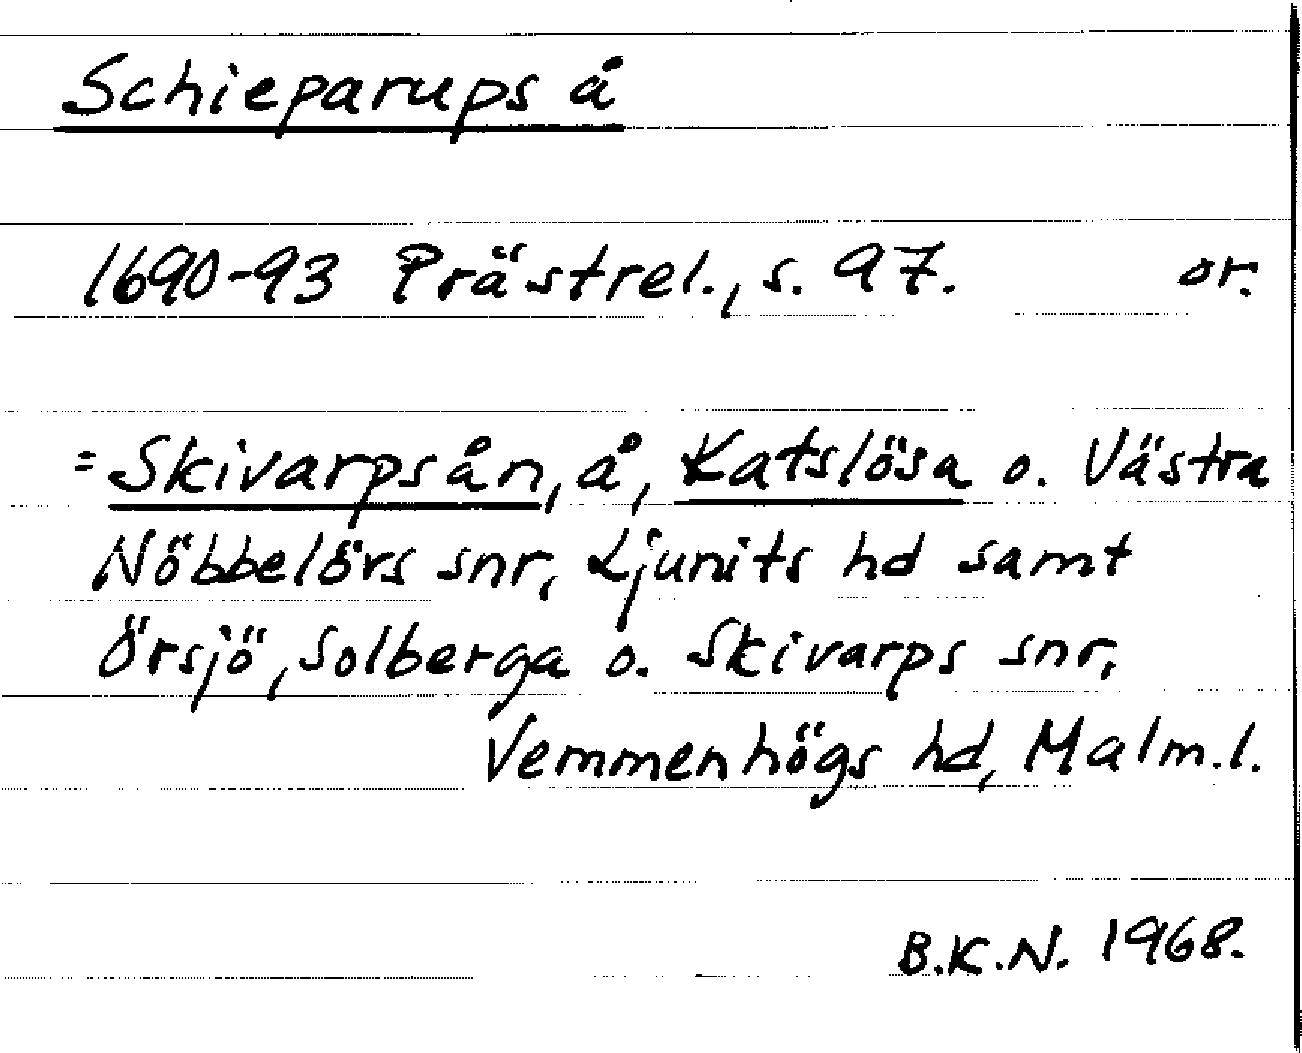 Schieparups å
1690-93 Prästrel., s. 97. or.
= Skivarpsån, å, Katslösa o. Västra
Nöbbelövs snr, Ljunits hd samt
Örsjö, Solberga o. Skivarps snr,
Vemmenhögs hd, Malm.l.
B.K.N. 1968.